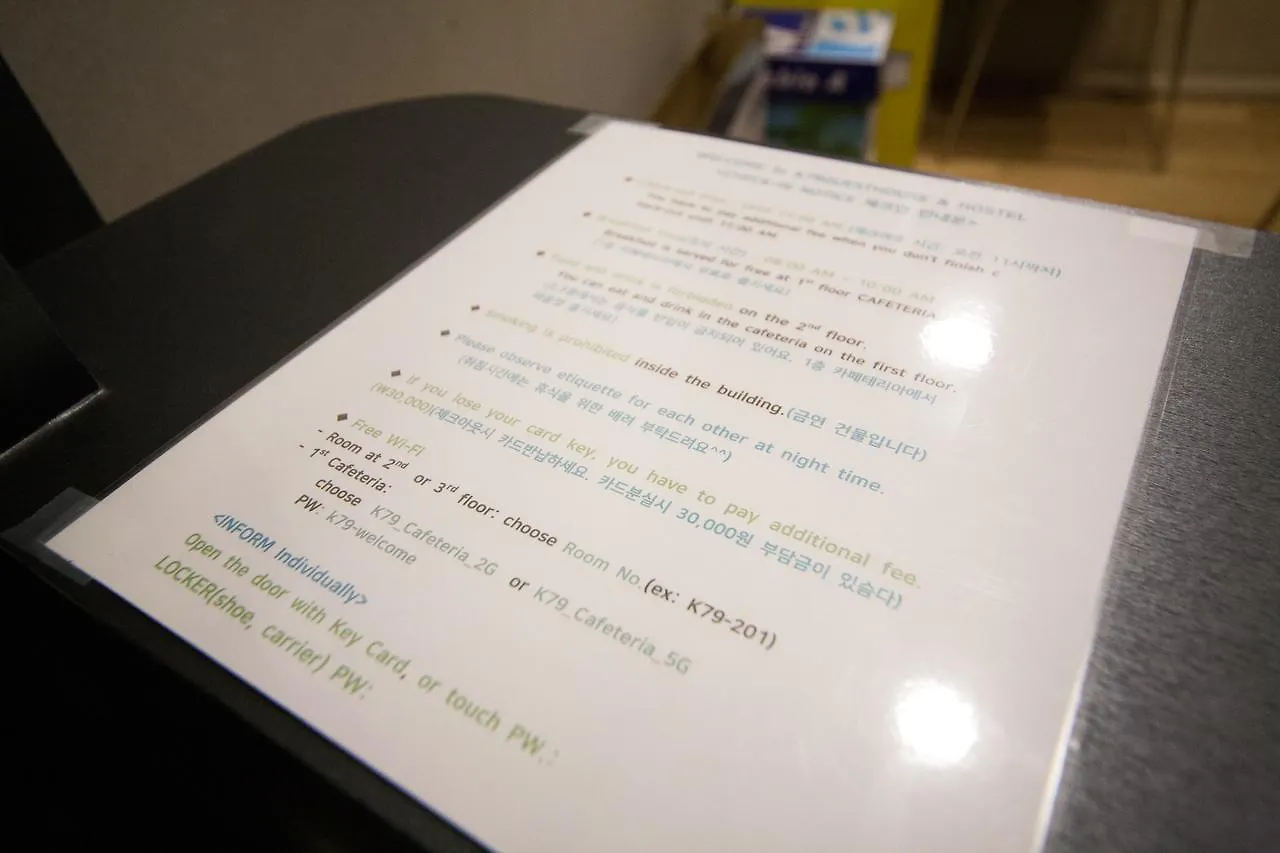 WELCOME to K79GUESTHOUSE & HOSTEL
<CHECK-IN NOTICE 체크인 안내문>
You have to pay additional fee when you don't finish c
heck-out until 11:00 AM.
08:00 AM ~ 10:00 AM
Breakfast is served for free at 1st floor CAFETERIA
Food and drink is forbidden on the 2nd floor.
You can eat and drink in the cafeteria on the first floor.
금지되어 있어요. 1층 카페테리아에서
◆ Smoking is prohibited inside the building.(금연 건물입니다)
◆ Please observe etiquette for each other at night time.
(취침시간에는 휴식을 위한 배려 부탁드려요^^)
◆ If you lose your card key, you have to pay additional fee.
(₩30,000)(체크아웃시 카드반납하세요. 카드분실시 30,000원 부담금이 있습다)
◆ Free Wi-Fi
- Room at 2nd or 3rd floor: choose Room No.(ex: K79-201)
- 1st Cafeteria:
choose K79_Cafeteria_2G or K79_Cafeteria_5G
PW: k79-welcome
<INFORM Individually>
Open the door with Key Card, or touch PW.:
LOCKER(shoe, carrier) PW: